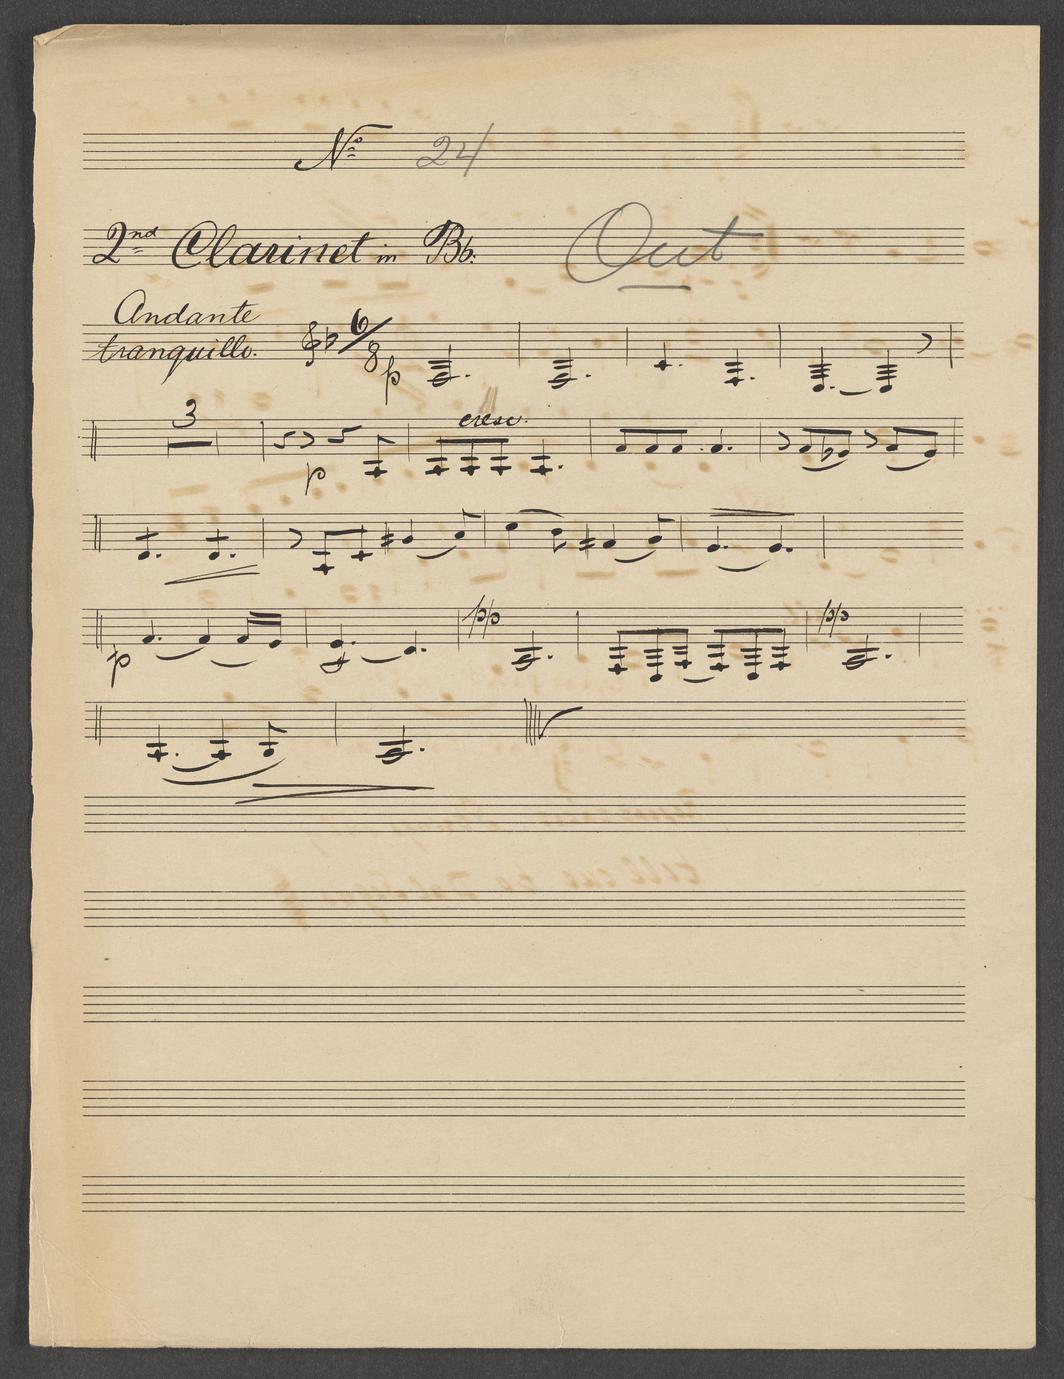 No 24
2nd Clarinet in Bb. Out
Andante
tranquillo.
6/8
p
3
cresc.
p
pp pp
p